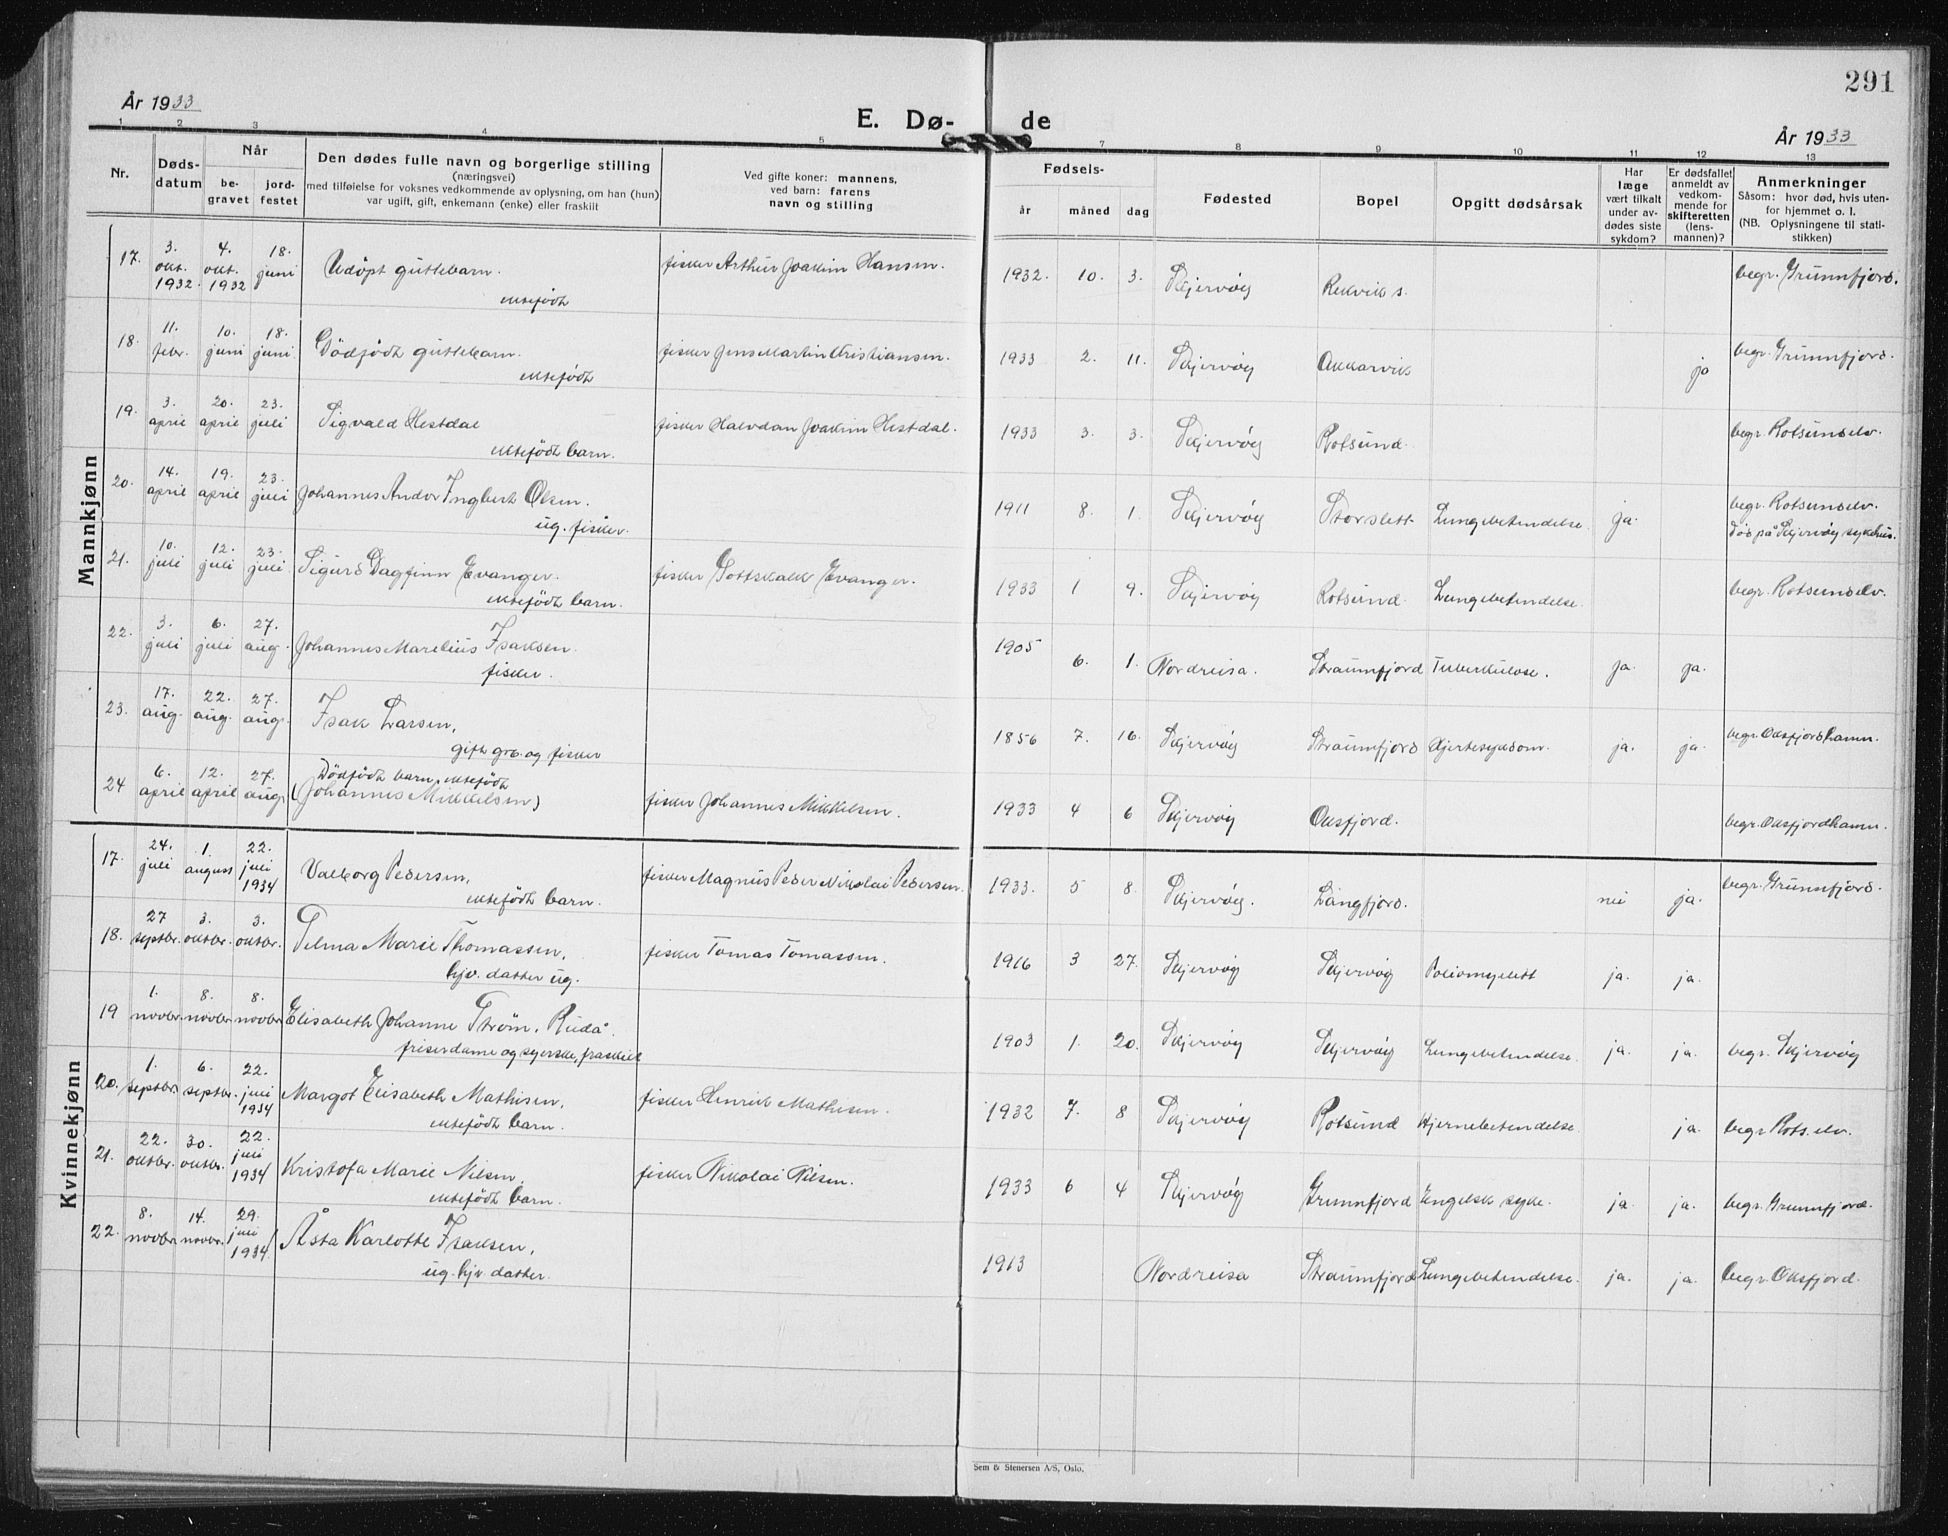 291
År 1933
E. Dø- de
År 1933
1 2 3 4 5 7 8 9 10 11 12 13
Nr.
Døds-
datum
Når
be-
gravet
jord-
festet
Den dødes fulle navn og borgerlige stilling
(næringsvei)
med tilføielse for voksnes vedkommende av oplysning, om han (hun)
var ugift, gift, enkemann (enke) eller fraskilt
Ved gifte koner: mannens,
ved barn: farens
navn og stilling
Fødsels-
år måned dag
Fødested
Bopel
Opgitt dødsårsak
Har
læge
vært tilkalt
under av-
dødes siste
sykdom?
Er dødsfallet
anmeldt av
vedkom-
mende for
skifteretten
(lens-
mannen)?
Anmerkninger
Såsom: hvor død, hvis uten-
for hjemmet o. l.
(NB. Oplysningene til stati-
stikken)
Mannkjønn
17. 3. okt. 1932. 4. okt. 1932 18. juni Udöpt guttebarn. fisker Arthur Joakim Hansen. 1932. 10. 3. Skjervöy Rekvik s. begr. Grunnfjord.
ektefödt
18. 11. febr. 10. juni 18. juni. Dödfödt guttebarn. fisker Jens Martin Kristiansen. 1933 2. 11. Skjervöy Akkarvik ja begr. Grunnfjord.
ektefödt
19. 3. april 20. april 23. juli Sigvald Hestdal fisker Halvdan Joakim Hestdal. 1933 3. 3. Skjervöy Rotsund. begr. Rotsundelv.
ektefödt barn.
20. 14. april 19. april 23. juli Johannes Andor Ingbert Olsen. 1911 8. 1. Skjervöy Storslett Lungebetendelse. ja. begr. Rotsundelv.
ug. fisker. död på Skjervöy sykehus.
21. 10. juli 12. juli 23. juli Sigurd Dagfinn Evanger. fisker Gottskalk Evanger. 1933 1 9. Skjervöy Rotsund. Lungebetendelse. begr. Rotsundelv.
ektefödt barn.
22. 3. juli 6. juli 27. aug. Johannes Marelius Isaksen. 1905 6. 1. Nordreisa. Straumfjord Tuberkulose. ja. ja.
fisker.
23. 17. aug. 22. aug. 27. aug. Isak Larsen, 1856 7. 16. Skjervöy Straumfjord Hjertesykdom. ja. ja. begr. Oksfjordhamn.
gift grb. og fisker
24 6. april 12. april 27. aug. Dödfödt barn, ektefödt
(Johannes Mikkelsen) fisker Johannes Mikkelsen. 1933 4 6 Skjervöy Oksfjord. begr. Oksfjordhamn.
Kvinnekjønn
17. 24. juli 1. august 22. juli 1934 Valborg Pedersen, fisker Magnus Peder Nikolai Pedersen. 1933. 5 8. Skjervöy. Langfjord. nei ja. begr. Grunnfjord.
ektefödt barn.
18. 27 septbr. 3. oktbr. 3. oktbr. Telma Marie Thomassen, fisker Tomas Tomassen. 1916 3 27. Skjervöy Skjervöy Poliomyelitt ja. ja.
hjv. datter ug.
19 1. novbr. 8. novbr. 8. novbr. Elisabeth Johanne Ström, Rudå. 1903 1. 20. Skjervöy Skjervöy Lungebetendelse. ja. ja. begr. Skjervöy
friserdame og syerske, fraskilt
20. 1. septbr. 6. septbr. 22. juli 1934 Margot Elisabeth Mathisen, fisker Henrik Mathisen. 1932 7. 8 Skjervöy Rotsund Hjernebetendelse. ja. begr. Rots.elv.
ektefödt barn.
21. 22. oktbr. 30. oktbr. 22. juli 1934 Kristofa Marie Nilsen, fisker Nikolai Nilsen. 1933 6 4 Skjervöy Grunnfjord Engelsk syke. ja. ja. begr. Grunnfjord.
ektefödt barn.
22. 8. novbr. 14. novbr. 29. juli 1934. Åsta Karlotte Isaksen, 1913 Nordreisa Straumfjord Lungebetendelse. ja. ja. begr. Oksfjord.
ug. hjv. datter.
Sem & Stenersen A/S, Oslo.